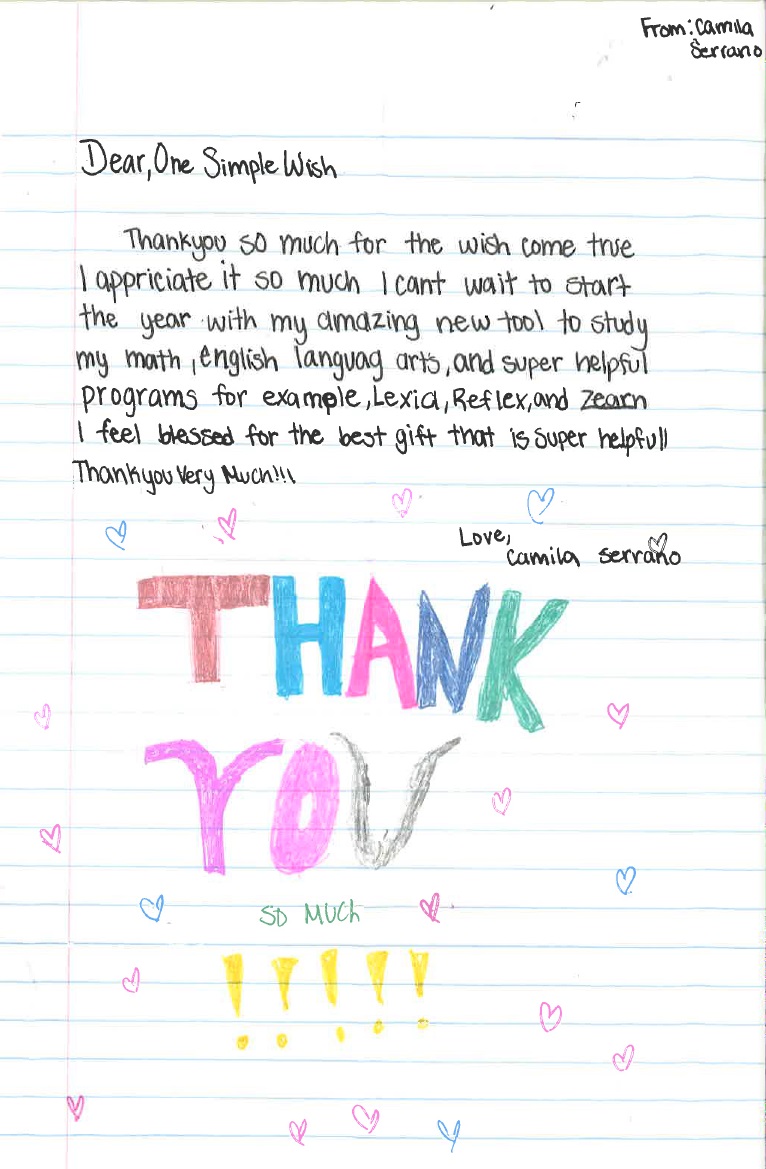 From: Camila
Serrano
Dear, One Simple Wish
Thankyou so much for the wish come true
I appriciate it so much I cant wait to start
the year with my amazing new tool to study
my math, english languag arts, and super helpful
programs for example, Lexia, Reflex, and Zearn
I feel blessed for the best gift that is super helpfull
Thankyou Very Much!!!
Love,
Camila Serrano
THANK
YOU
SO MUCh
!!!!!